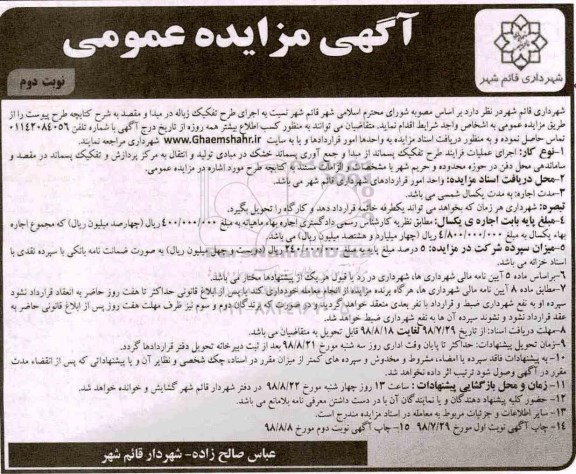 آگهی مزایده عمومی
شهرداری قائم شهر
نوبت دوم
شهرداری قائم شهر در نظر دارد بر اساس مصوبه شورای محترم اسلامی شهر قائم شهر نسبت به اجرای طرح تفکیک زباله در مبدا و مقصد به شرح کتابچه طرح پیوست را از
طریق مزایده عمومی به اشخاص واجد شرایط اقدام نماید. متقاضیان می توانند به منظور کسب اطلاع بیشتر همه روزه از تاریخ درج آگهی با شماره تلفن ۰۱۱۴۲۰۸۴۰۵۶
تماس حاصل نموده و به منظور دریافت اسناد مزایده به واحدها امور قراردادها و یا به سایت www.Ghaemshahr.ir شهرداری مراجعه نمایند.
۱-نوع کار: اجرای عملیات فرایند طرح تفکیک پسماند از مبدا و جمع آوری پسماند خشک در مبادی تولید و انتقال به مرکز پردازش و تفکیک پسماند در مقصد و
ساماندهی محل دفن در حوزه محدوده و حریم شهر با مشخصات و الزامات استناد به کتابچه طرح مورد اشاره در مزایده عمومی.
۲-محل دریافت اسناد مزایده: واحد امور قراردادهای شهرداری قائم شهر می باشد.
۳-مدت اجاره: به مدت یکسال شمسی می باشد.
تبصره: شهرداری هر زمان که بخواهد می تواند یکطرفه خاتمه قرارداد دهد و کارگاه را تحویل بگیرد.
۴-مبلغ پایه بابت اجاره ی یکسال: مطابق نظریه کارشناس رسمی دادگستری اجاره بهاء ماهیانه به مبلغ ۴۰۰/۰۰۰/۰۰۰ ریال (چهارصد میلیون ریال) که مجموع اجاره
بهاء یکسال به مبلغ ۴/۸۰۰/۰۰۰/۰۰۰ ریال (چهار میلیارد و هشتصد میلیون ریال) می باشد.
۵-میزان سپرده شرکت در مزایده: ۵ درصد مبلغ پایه به مبلغ ۲۴۰/۰۰۰/۰۰۰ ریال (دویست و چهل میلیون ریال) به صورت ضمانت نامه بانکی با سپرده نقدی با
اسناد خزانه می باشد.
۶-براساس ماده ۵ آیین نامه مالی شهرداری ها، شهرداری در رد یا قبول هر یک از پیشنهادها مختار می باشد.
۷-مطابق ماده ۸ آیین نامه مالی شهرداری ها، هرگاه برنده مزایده از انجام معامله خودداری کند یا پس از ابلاغ قانونی حداکثر تا هفت روز حاضر به انعقاد قرارداد نشود
سپرده او به نفع شهرداری ضبط و قرارداد با نفر بعدی منعقد خواهد گردید، در صورت که برندگان دوم و سوم نیز ظرف مهلت هفت روز پس از ابلاغ قانونی حاضر به
عقد قرارداد نشود و نشوند سپرده آن ها به نفع شهرداری ضبط خواهد شد.
۸-مهلت دریافت اسناد: از تاریخ ۹۸/۷/۲۹ لغایت ۹۸/۸/۱۸ قابل تحویل به متقاضیان می باشد.
۹-زمان تحویل پیشنهادات: حداکثر تا پایان وقت اداری روز سه شنبه مورخ ۹۸/۸/۲۱ بعد از ثبت دبیرخانه تحویل دفتر قراردادها گردد.
۱۰-به پیشنهادات فاقد سپرده یا امضاء، مشروط و مخدوش و سپرده های کمتر از میزان مقرر در اسناد، چک شخصی و نظایر آن و یا پیشنهاداتی که پس از انقضاء مدت
مقرر در آگهی وصول شود ترتیب اثر داده نخواهد شد.
۱۱-زمان و محل بازگشایی پیشنهادات : ساعت ۱۳ روز چهار شنبه مورخ ۹۸/۸/۲۲ در دفتر شهردار قائم شهر گشایش و خوانده خواهد شد.
۱۲- حضور کلیه پیشنهاد دهندگان و یا نمایندگان آن با در دست داشتن معرفی نامه بلامانع می باشد.
۱۳- سایر اطلاعات و جزئیات مربوط به معامله در اسناد مزایده مندرج است.
۱۴- چاپ آگهی نوبت اول مورخ ۹۸/۷/۲۹ ۱۵- چاپ آگهی نوبت دوم مورخ ۹۸/۸/۸
عباس صالح زاده- شهردار قائم شهر